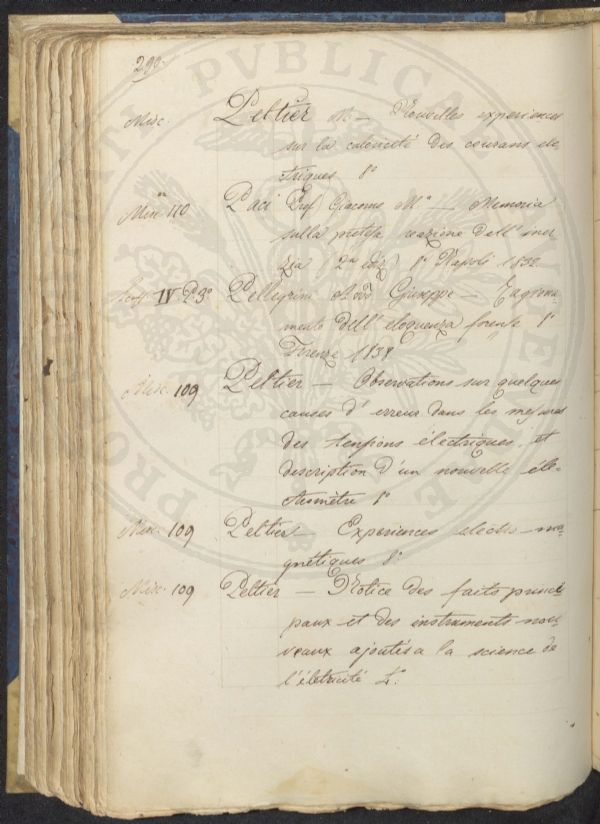 290
Misc. Peltier M — Nouvelles experiences
sur la caloricité des courans éle
ctriques 8°
Misc 110 Paci Prof Giacomo Mª — Memoria
sulla pretesa reazione dell' iner
zia (2ª ediz) 8° Napoli 1832
IV P. 3° Pellegrini Avv Giuseppe — Ragiona
mento dell' eloquenza forense 8°
Firenze 1838
Misc. 109 Peltier — Observations sur quelques
causes d' erreur dans les mesures
des tensions électriques, et
description d'un nouvelle éle-
ctromètre 8°
Misc. 109 Peltier — Experiences electro-ma-
gnétiques 8°
Misc. 109 Peltier — Notice des faits princi
paux et des instruments nou
veaux ajoutés a la science de
l'életricité 4°